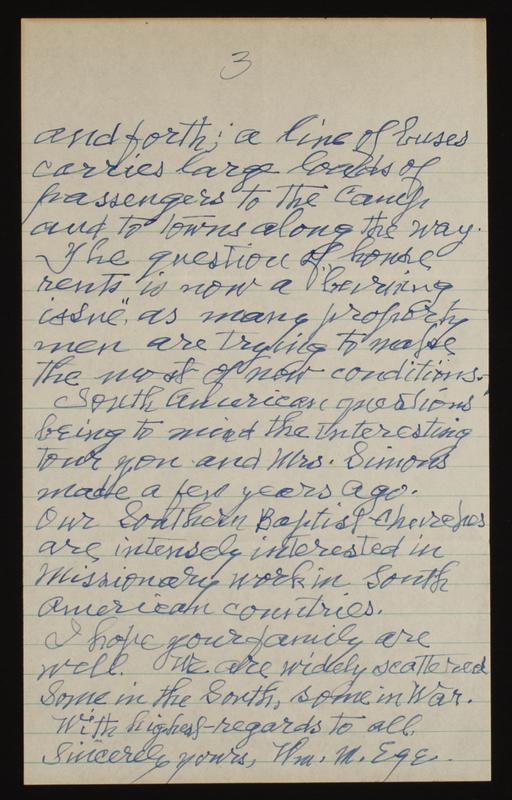 3
and forth; a line of buses
carries large loads of
passengers to the Camp
and to towns along the way.
The question of house
rents is now a "burning
issue", as many property
men are trying to make
the most of now conditions.
South American questions
being to mind the interesting
tour you and Mrs. Simons
made a few years ago.
Our Southern Baptist Churches
are intensely interested in
missionary work in South
American countries.
I hope your family are
well. We are widely scattered
Some in the South, some in War.
With highest regards to all.
Sincerely yours, Wm. M. Ege.